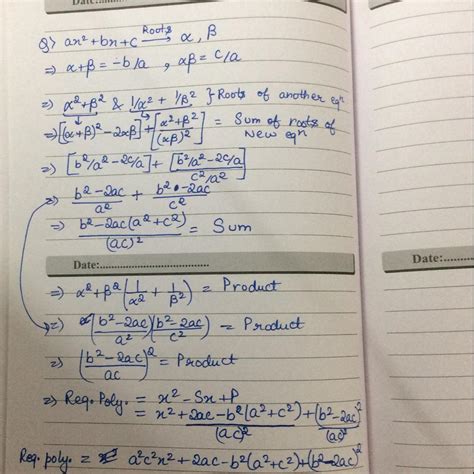 Date:
Q> ax²+bx+c —Roots→ α, β
=> α+β = -b/a , αβ = c/a
=> α²+β² & 1/α² + 1/β² } Roots of another eqn
=> [(α+β)²-2αβ] + [α²+β²/(αβ)²] = Sum of roots of New eqn
=> [b²/a² - 2c/a] + [b²/a² - 2c/a / c²/a²]
=> b²-2ac/a² + b²-2ac/c²
=> b²-2ac(a²+c²)/(ac)² = Sum
Date:
Date:
=> α²+β²(1/α² + 1/β²) = Product
=> (b²-2ac/a²)(b²-2ac/c²) = Product
=> (b²-2ac/ac)² = Product
=> Req. Poly. = x²-Sx+P
= x²+2ac-b²(a²+c²)/(ac)² + (b²-2ac)²/(ac)²
Req. poly. = a²c²x²+2ac-b²(a²+c²)+(b²-2ac)²